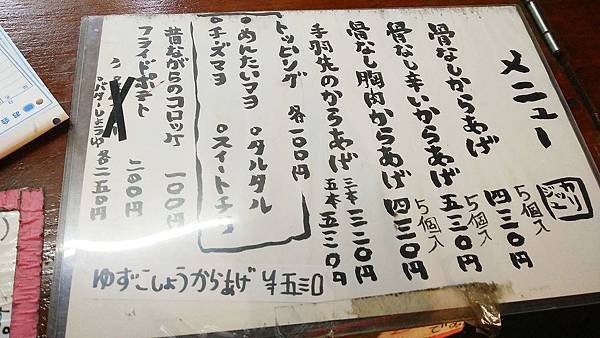 メニュー
カリッジュー
骨なしからあげ 5個入 四三〇円
骨なし辛いからあげ 5個入 五三〇円
骨なし胸肉からあげ 5個入 四三〇円
手羽先のからあげ 三本 三二〇円
五本 五二〇円
トッピング 各一〇〇円
○めんたいマヨ ○タルタル
○チーズマヨ ○スイートチリ
昔ながらのコロッケ 一〇〇円
フライドポテト 二〇〇円
○バターしょうゆ 各二五〇円
ゆずこしょうからあげ ¥五三〇